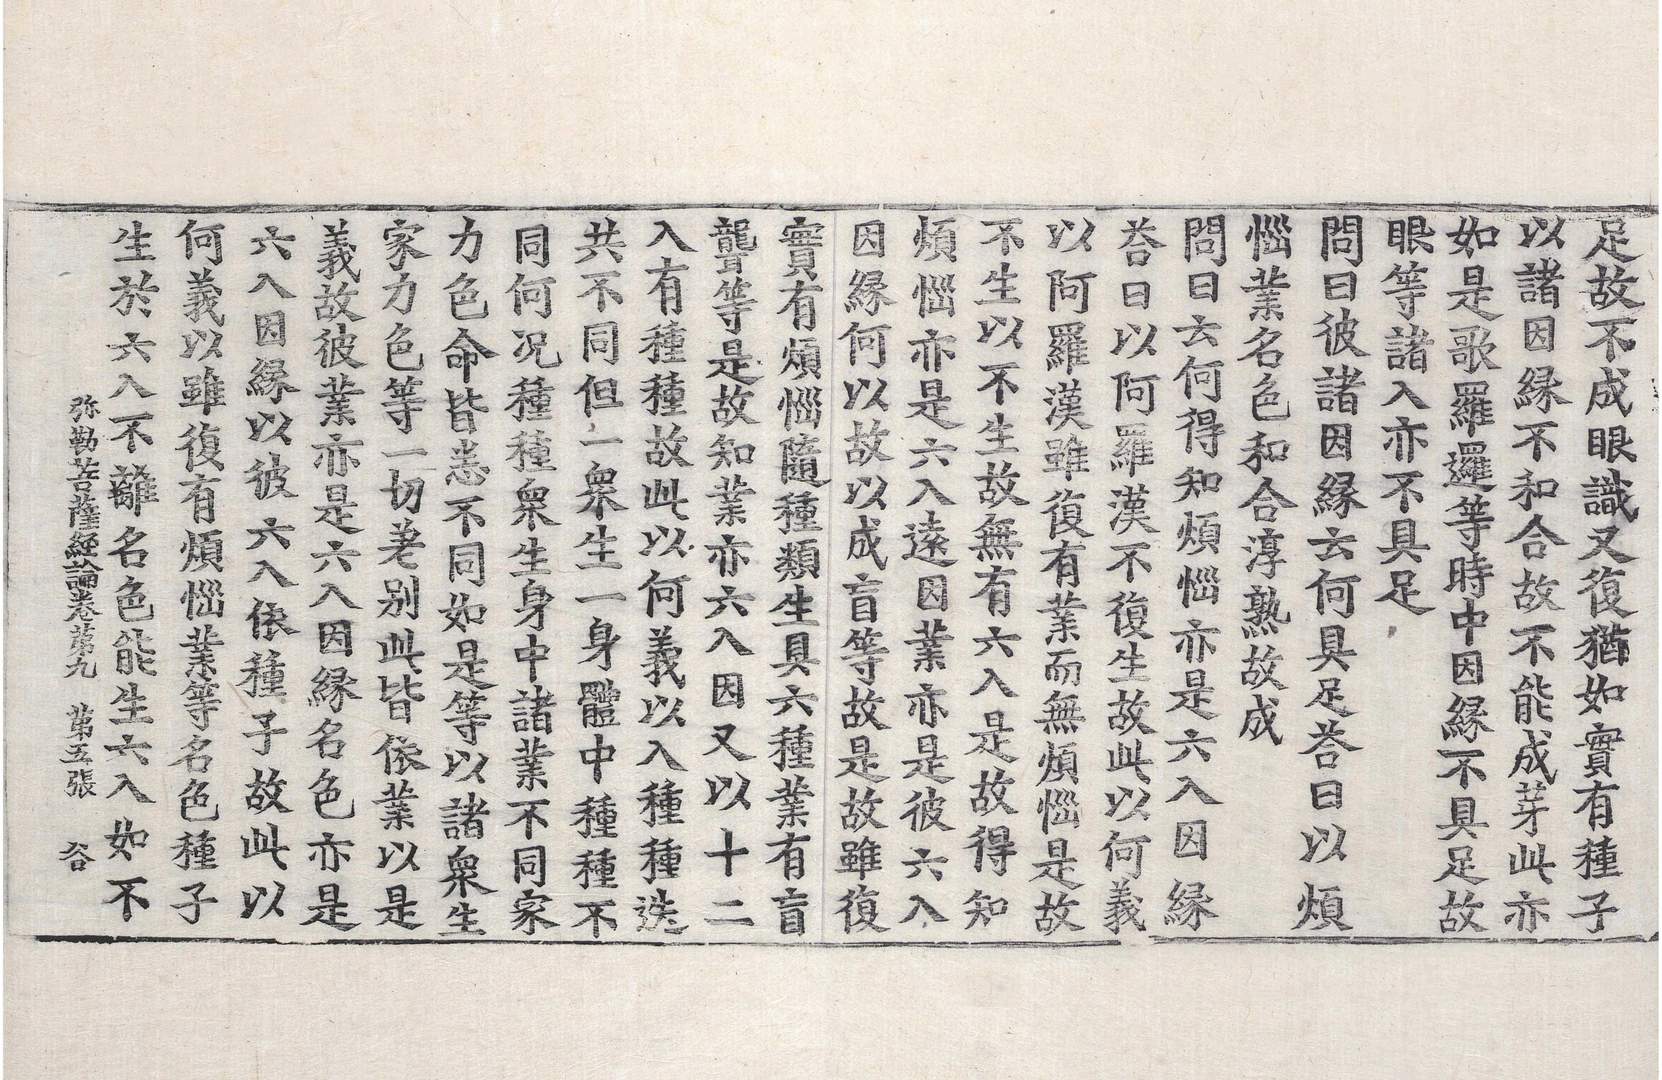 足故不成眼識又復猶如實有種子
以諸因緣不和合故不能成芽此亦
如是歌羅邏等時中因緣不具足故
眼等諸入亦不具足
問曰彼諸因緣云何具足荅曰以煩
惱業名色和合淳熟故成
問曰云何得知煩惱亦是六入因緣
荅曰以阿羅漢不復生故此以何義
以阿羅漢雖復有業而無煩惱是故
不生以不生故無有六入是故得知
煩惱亦是六入遠因業亦是彼六入
因緣何以故以成盲等故是故雖復
實有煩惱隨種類生具六種業有盲
聾等是故知業亦六入因又以十二
入有種種故此以何義以入種種迭
共不同但一衆生一身體中種種不
同何况種種衆生身中諸業不同家
力色命皆悉不同如是等以諸衆生
家力色等一切差別此皆依業以是
義故彼業亦是六入因緣名色亦是
六入因緣以彼六入依種子故此以
何義以雖復有煩惱業等名色種子
生於六入不離名色能生六入如不
弥勒菩薩經論卷第九 第五張 谷